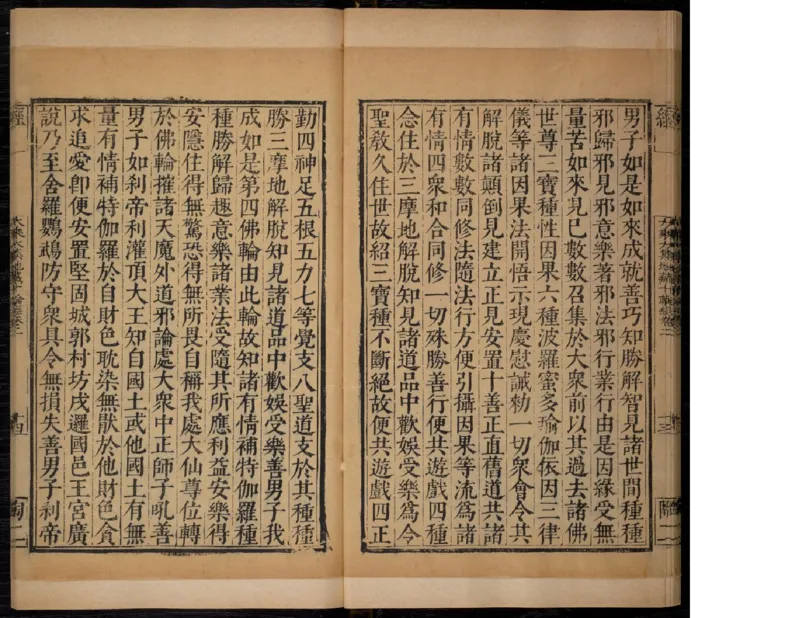 男子如是如來成就善巧知勝解智見諸世間種種
邪歸邪見邪意樂著邪法邪行業行由是因緣受無
量苦如來見已數數召集於大眾前以其過去諸佛
世尊三寶種性因果六種波羅蜜多瑜伽依因三律
儀等諸因果法開悟示現慶慰誡勅一切眾會令其
解脫諸顛倒見建立正見安置十善正直舊道共諸
有情數數同修法隨法行方便引攝因果等流為諸
有情四眾和合同修一切殊勝善行便共遊戲四種
念住於三摩地解脫知見諸道品中歡娛受樂為令
聖教久住世故紹三寶種不斷絕故便共遊戲四正
勤四神足五根五力七等覺支八聖道支於其種種
勝三摩地解脫知見諸道品中歡娛受樂善男子我
成如是第四佛輪由此輪故知諸有情補特伽羅種
種勝解歸趣意樂諸業法受隨其所應利益安樂得
安隱住得無驚恐得無所畏自稱我處大仙尊位轉
於佛輪摧諸天魔外道邪論處大眾中正師子吼善
男子如刹帝利灌頂大王知自國土或他國土有無
量有情補特伽羅於自財色耽染無猒於他財色貪
求追愛卽便安置堅固城郭村坊戍邏國邑王宮廣
說乃至舍羅鸚鵡防守眾具令無損失善男子刹帝
經
十三
經
十四
陶二